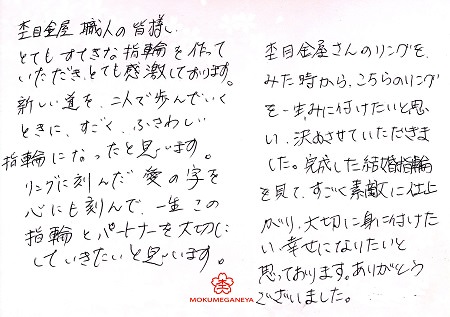 杢目金屋 職人の皆様へ
とてもすてきな指輪を作って
いただき、とても感激しております。
新しい道を、二人で歩んでいく
ときに、すごく、ふさわしい
指輪になったと思います。
リングに刻んだ愛の字を
心にも刻んで、一生この
指輪とパートナーを大切に
していきたいと思います。
杢目金屋さんのリングを、
みた時から、こちらのリング
を一生みに付けたいと思
い、決めさせていただきま
した。完成した結婚指輪
を見て、すごく素敵に仕上
がり、大切に身に付けた
い、幸せになりたいと
思っております。ありがとう
ございました。
MOKUMEGANEYA